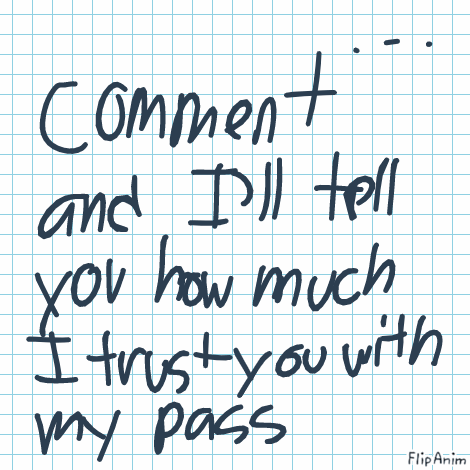 Comment
and I'll tell
you how much
I trust you with
my pass
FlipAnim